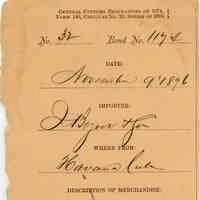 GENERAL CUSTOMS REGULATIONS OF 1874,
FORM 140, CIRCULAR No. 23, SERIES OF 1876.
No. 32 Bond No. 117
DATE:
November 9" 1876
IMPORTER:
J
WHERE FROM:
Havana Cuba
DESCRIPTION OF MERCHANDISE: